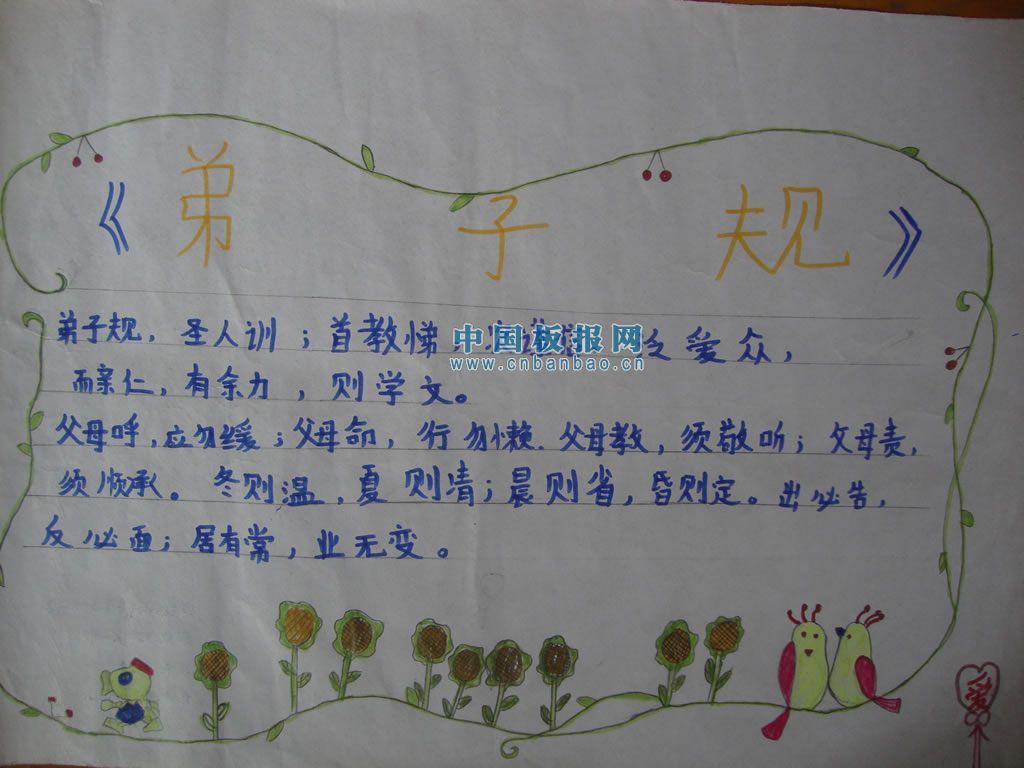 《弟子规》
弟子规，圣人训；首教悌 泛爱众，
而亲仁，有余力，则学文。
父母呼，应勿缓；父母命，行勿懒．父母教，须敬听；父母责，
须顺承。冬则温，夏则凊；晨则省，昏则定。出必告，
反必面；居有常，业无变。
中国板报网
www.cnbanbao.cn
爱